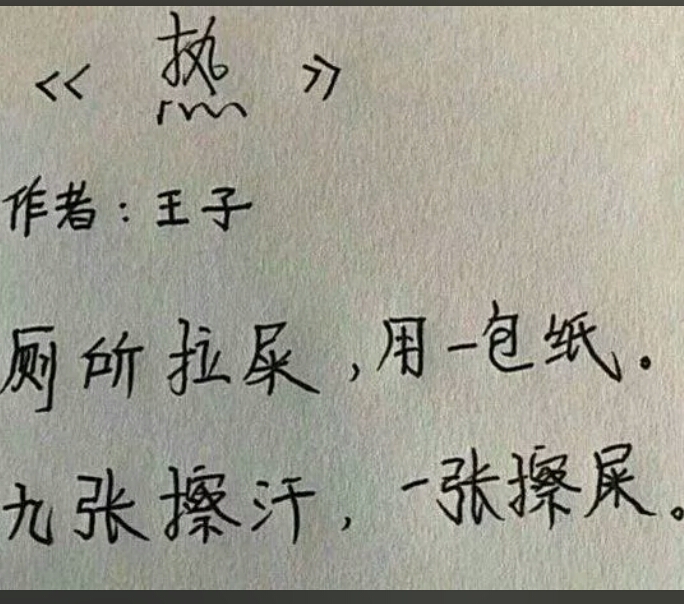 << 热 >>
作者：王子
厕所拉屎，用一包纸.
九张擦汗，一张擦屎。